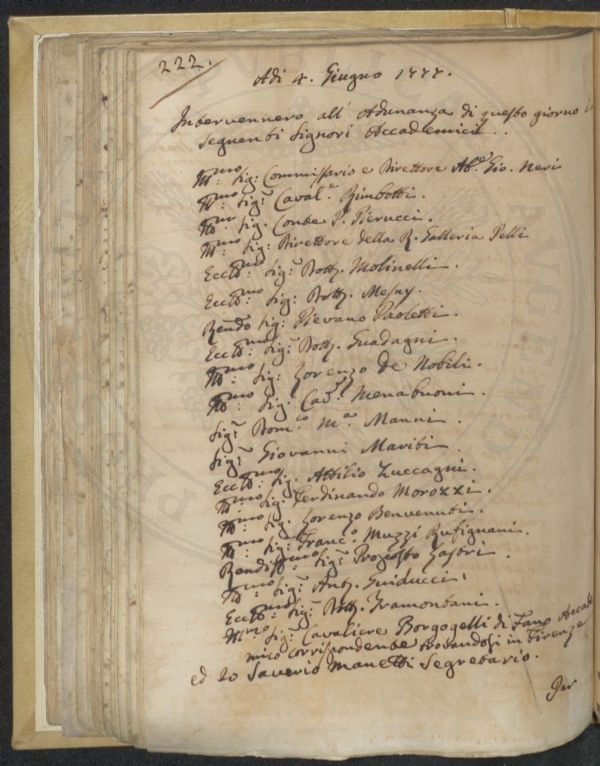 222.
Adi 4. Giugno 1777.
Intervennero all' Adunanza di questo giorno i
seguenti Signori Accademici.
Ill:mo Sig: Commissario e Direttore Ab:e Gio. Neri
Ill:mo Sig:r Caval:e Bimbotti.
Ill:mo Sig: Conte P. Pierucci.
Ill:mo Sig: Direttore della R. Galleria Pelli
Ecc:mo Sig:r Dott. Molinelli.
Ecc:mo Sig: Dott. Mesny.
Rendo Sig: Pievano Paoletti.
Ecc:mo Sig:r Dott. Guadagni.
Ill:mo Sig: Lorenzo de Nobili.
Ill:mo Sig: Cav:e Menabuoni.
Sig:r Dom:co M:a Manni.
Sig:r Giovanni Mariti.
Ecc:mo Sig. Attilio Zuccagni.
Ill:mo Sig: Ferdinando Morozzi.
Ill:mo Sig. Lorenzo Benvenuti.
Ill:mo Sig: Franc:o Muzzi Rufignani.
Rendiss:mo Sig:r Proposto Lastri.
Ill:mo Sig:r Ant. Guiducci.
Ecc:mo Sig: Dott. Tramontani.
Ill:mo Sig: Cavaliere Borgogelli di Fano Accade
mico corrispondente trovandosi in Firenze
ed Io Saverio Manetti Segretario.
Per